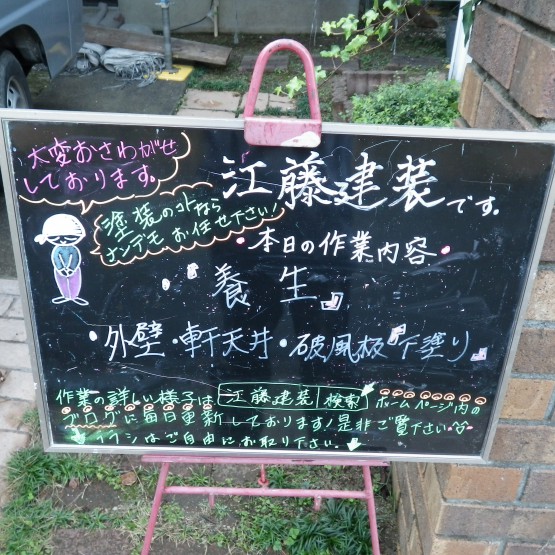 大変おさわがせ
しております。
江藤建装です。
塗装の外なら
ナンデモお任せ下さい!
・本日の作業内容・
養生
・外壁・軒天井・破風板下塗り
作業の詳しい様子は 江藤建装 検索 ホームページ内の
ブログに毎日更新しております!是非ご覧下さい
チラシはご自由にお取り下さい。